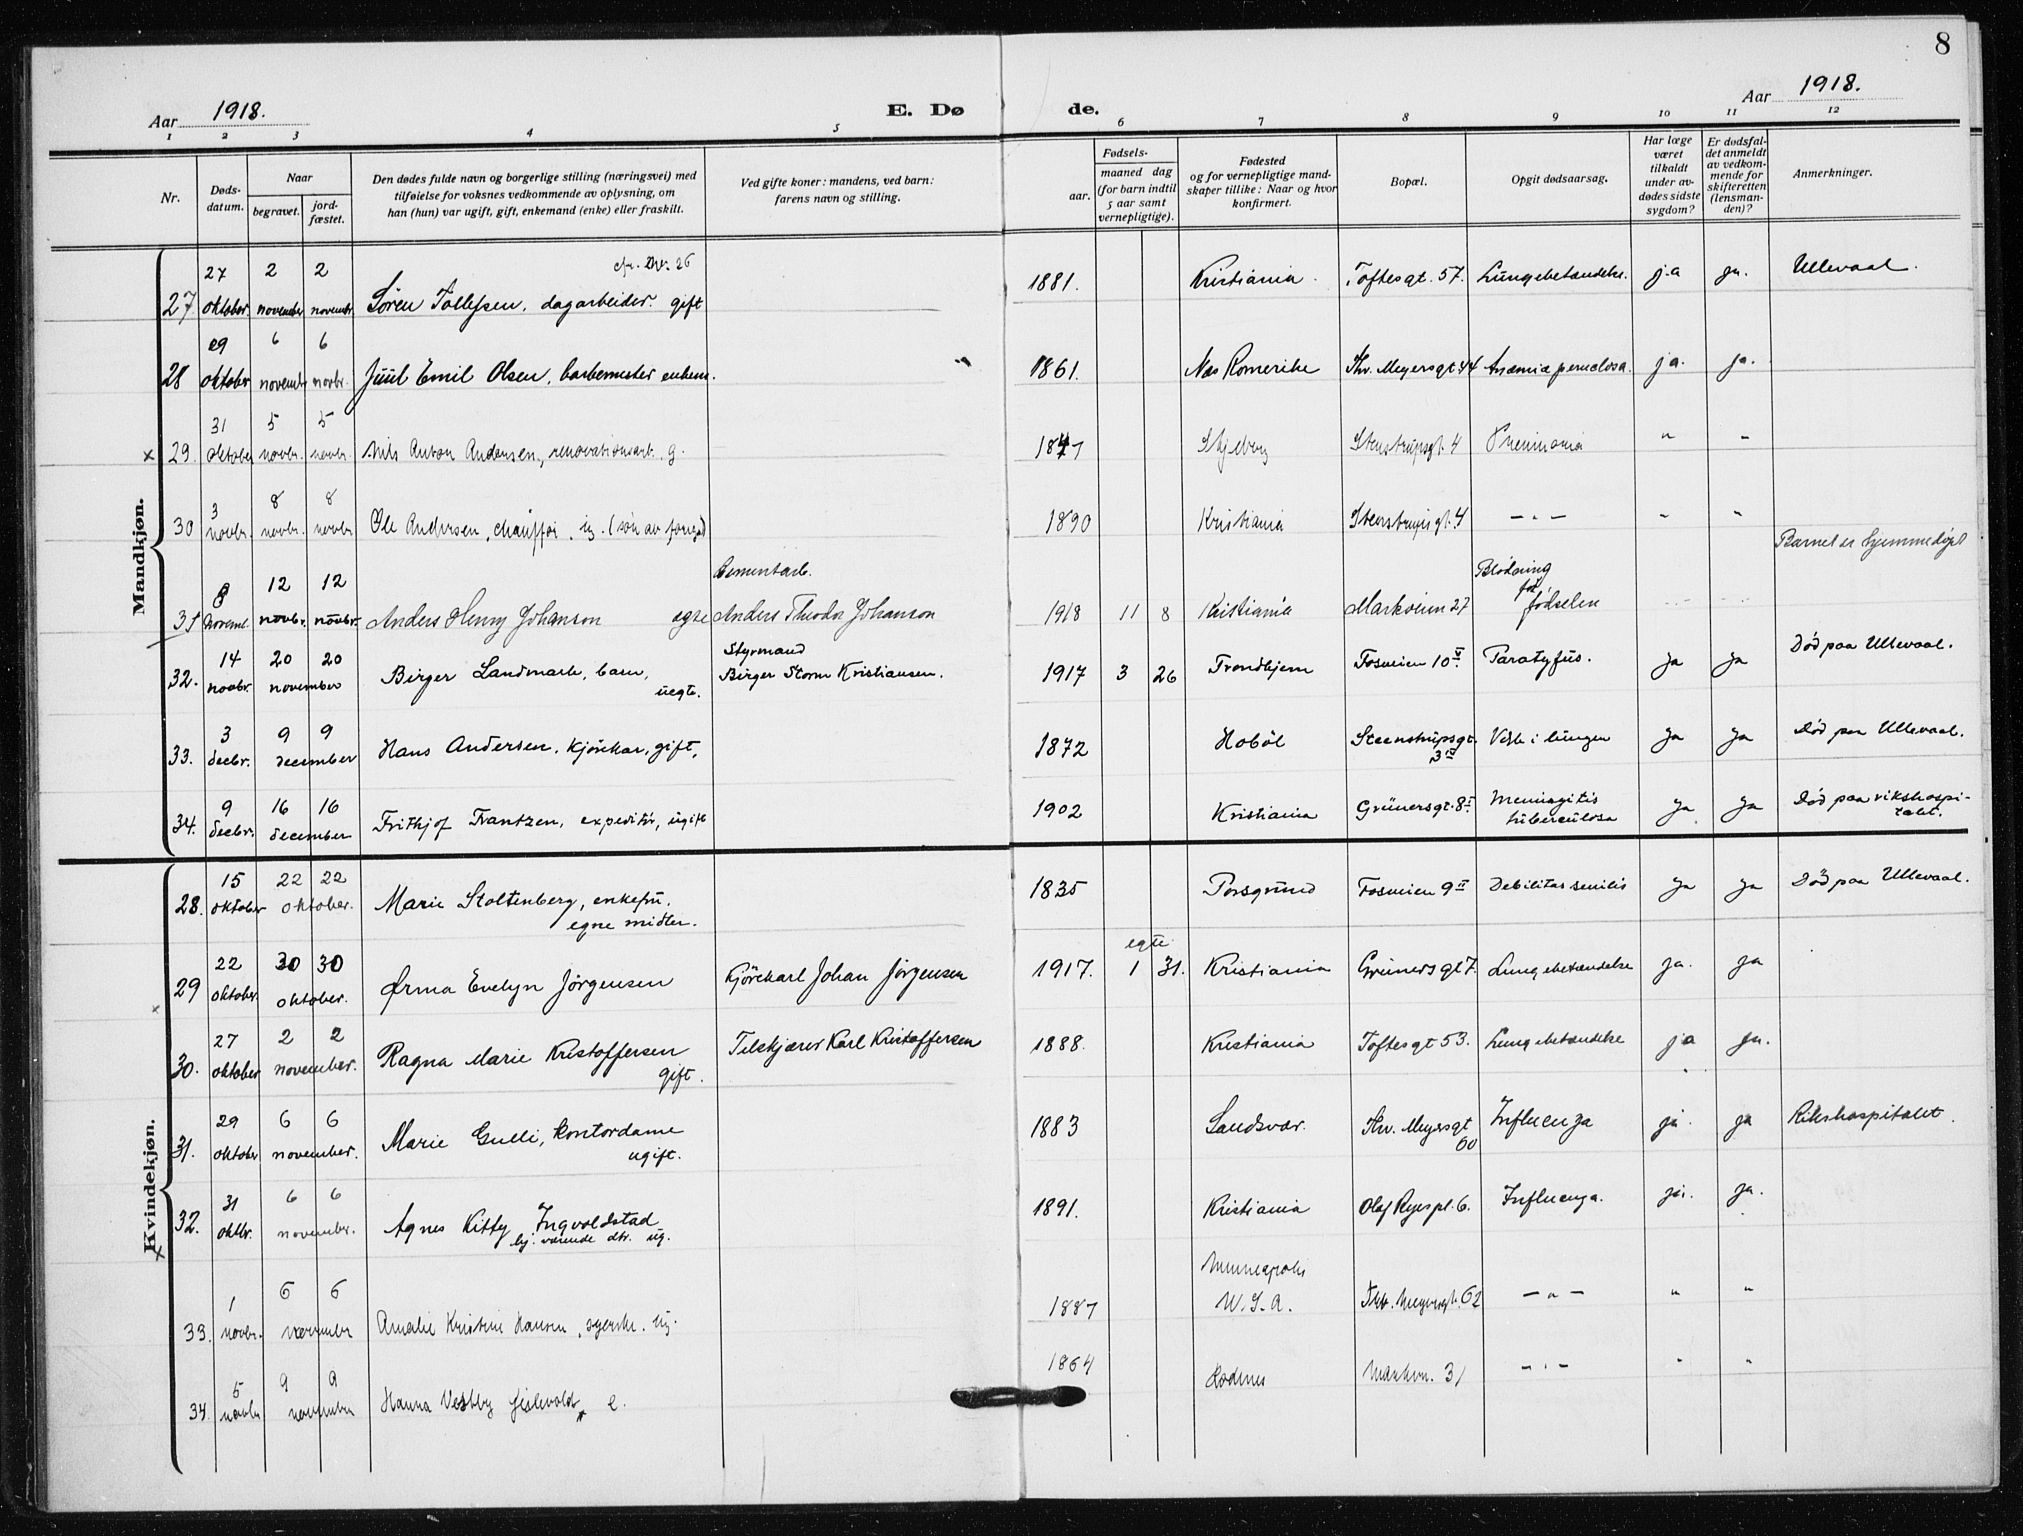 8
Aar 1918.
E. Dø de.
Aar 1918.
1 2 3 4 5 6 7 8 9 10 11 12
Nr.
Døds-
datum.
Naar
begravet.
jord-
fæstet.
Den dødes fulde navn og borgerlige stilling (næringsvei) med
tilføielse for voksnes vedkommende av oplysning, om
han (hun) var ugift, gift, enkemand (enke) eller fraskilt.
Ved gifte koner: mandens, ved barn:
farens navn og stilling.
aar.
Fødsels-
maaned dag
(for barn indtil
5 aar samt
vernepligtige).
Fødested
og for vernepligtige mand-
skaper tillike: Naar og hvor
konfirmert.
Bopæl.
Opgit dødsaarsag.
Har læge
været
tilkaldt
under av-
dødes sidste
sygdom?
Er dødsfal-
det anmeldt
av vedkom-
mende for
skifteretten
(lensman-
den)?
Anmerkninger.
Mandkjøn.
cfr. Nr. 26
27 2 2
27 oktober november novembr Sören Tollefsen, dagarbeider. gift 1881. Kristiania. Toftesgt. 57. Lungebetændelse. ja ja. Ullevaal.
29 6 6
28 oktober novembr novbr. Juul Emil Olsen, barbermester enkem. 1861. Næs Romerike Thv. Meyersgt. 44 Anæmia perneciosa. ja. ja.
31 5 5
× 29. oktober novbr. novbr. Nils Anton Andersen, renovationsarb. g. 1847 Skjeberg Stenstrupsgt. 4 Pneumonia " "
3 8 8
30 novbr. novbr. novbr Ole Andersen, chauffør, ug. (søn av foreg.) 1890 Kristiania Stenstrupsgt. 4 — " — " "
Barnet er hjemmedøpt
8 12 12 Cementarb. Blødning
før
31 Noveml. novbr. novbr. Anders Henry Johanson egte Anders Theodor Johanson 1918 11 8 Kristiania Markveien 27 fødselen
14 20 20 Styrmand
32. novbr. november Birger Landmark, barn, uegte. Birger Storm Kristiansen. 1917 3 26 Trondhjem Fosveien 10 V. Paratyfus. ja ja Död paa Ullevaal.
3 9 9
33. decbr. december Hans Andersen, kjörekar, gift, 1872 Hoböl Steenstrupsgt. 3 IV Vesk i lungen ja ja Död paa Ullevaal.
9 16 16
34. decbr. december Frithjof Frantzen, expeditör, ugift 1902 Kristiania Grünersgt. 8 I Meningitis
tuberculosa ja ja Död paa rikshospi-
talet.
Kvindekjøn.
15 22 22
28. oktober oktober. Marie Stoltenberg, enkefru,
egne midler. 1835 Porsgrund Fosveien 9 II Debilitas senilis ja ja Död paa Ullevaal.
22 30 30 egte
× 29 oktober. oktober. Ørma Evelyn Jörgensen Kjörekarl Johan Jörgensen 1917. 1 31. Kristiania Grünersgt 7. Lungebetændelse ja. ja
27 2 2
30. oktober november. Ragna Marie Kristoffersen
gift. Tilskjærer Karl Kristoffersen 1888. Kristiania Toftesgt 53. Lungebetændelse ja ja.
29 6 6
31. oktober november. Marie Gulli, kontordame
ugift. 1883 Sandsvær. Thv. Meyersgt
60 Influenza ja. ja Rikshospitalet.
31 6 6
× 32. oktbr. november. Agnes Kitty Ingvoldstad
hj. værende dtr. ug. 1891. Kristiania Olaf Ryes pl. 6. Influenza. ja. ja.
1 6 6 Minneapolis
33. novbr. november Amalie Kristine Hansen, syerske. ug. 1887 U.S.A. Thv. Meyersgt. 62 — " — " "
5 9 9
34. novbr november Hanna Vestby e. 1864 Rødenes Markvn. 31 — " — " "